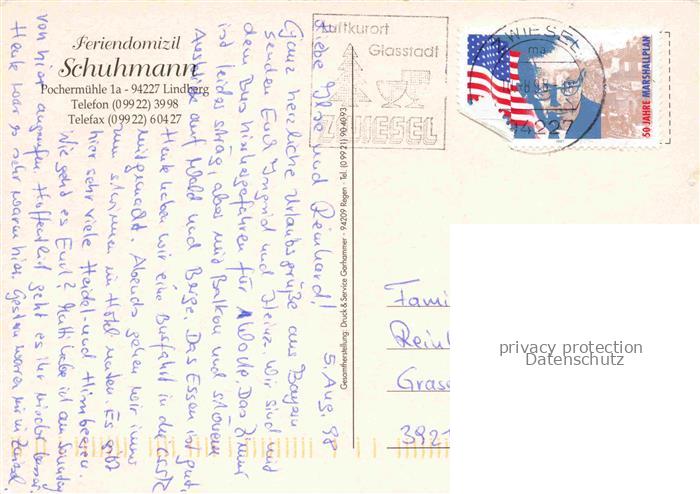 Feriendomizil
Schuhmann
Pochermühle 1a - 94227 Lindberg
Telefon (0 99 22) 39 98
Telefax (0 99 22) 6 04 27
Luftkurort
Glasstadt
ZWIESEL
ZWIESEL
ma
94227
50 JAHRE MARSHALLPLAN
5. Aug. 98
Liebe Ilse und Reinhard!
Ganz herzliche Urlaubsgrüße aus Bayern
senden Euch Ingrid und Heinz. Wir sind mit
dem Bus hierhergefahren für 1 Woche. Das Zimmer
ist leider schräg, aber mit Balkon und schönem
Ausblick auf Wald und Berge. Das Essen ist gut.
Heute haben wir eine Busfahrt in die
mitgemacht. Abends gehen wir immer
zum schwimmen im Hotel unten. Es gibt
hier sehr viele Heidel- und Himbeeren.
Wie geht es Euch? Mutti habe ich am Sonntag
von hier angerufen. Hoffentlich geht es ihr wieder besser.
Heute war es sehr warm hier. Gestern waren wir in Zwiesel.
Gesamtherstellung: Druck & Service Garhammer · 94209 Regen · Tel. (0 99 21) 90 40 93
Fami
Rein
Gras
392
privacy protection
Datenschutz